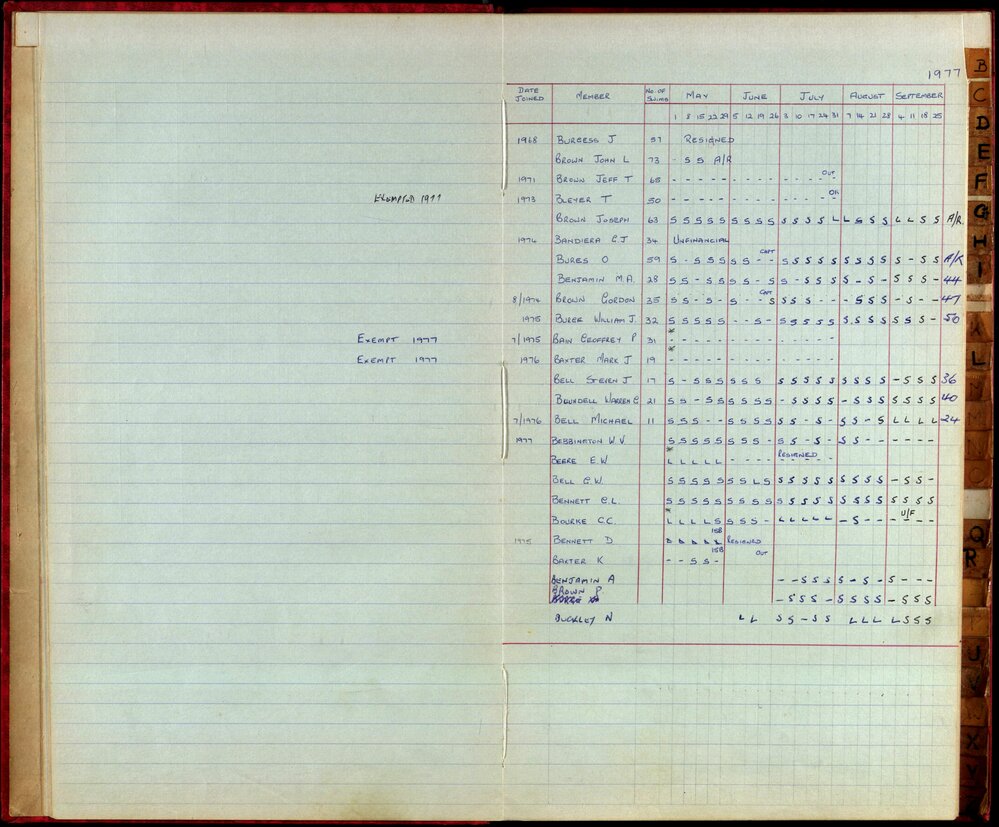 1977
DATE JOINED MEMBER NO. OF SWIMS MAY JUNE JULY AUGUST SEPTEMBER
1 8 15 22 29 5 12 19 26 3 10 17 24 31 7 14 21 28 4 11 18 25
1968 BURGESS J 57 RESIGNED
BROWN JOHN L 73 - S S A/R
OUT
1971 BROWN JEFF T 65 - - - - - - - - - - - - -
OK
EXEMPTED 1977 1973 BLEYER T 50 - - - - - - - - - - - - -
BROWN JOSEPH 63 S S S S S S S S S S S S S L L S S S L L S S A/R
1974 BANDIERA C.J 34 UNFINANCIAL
CAPT
BURES O 59 S - S S S S S - - S S S S S S S S S S - S S A/R
BENJAMIN M.A. 28 S S - S S S - S S S - S S S S - S - S S S - 44
CAPT
8/1974 BROWN GORDON 35 S S - S - S - - S S S S - - - S S S - S - - 47
1975 BURGE WILLIAM J. 32 S S S S S - - S - S S S S S S S S S S S S - 50
*
EXEMPT 1977 7/1975 BAIN GEOFFREY P 31 - - - - - - - - - - - - - -
*
EXEMPT 1977 1976 BAXTER MARK J 19 - - - - - - - - - - - - - -
BELL STEVEN J 17 S - S S S S S S S S S S S S S S S - S S S 36
BLUNDELL WARREN C 21 S S - S S S S S S - S S S S - S S S S S S S 40
7/1976 BELL MICHAEL 11 S S S - - S S S S S S - S - S S - S L L L L - 24
1977 BEBBINGTON W.V. S S S S S S S S - S S - S - S S - - - - - -
*
RESIGNED
BEERE E.W L L L L L - - - - - - - - -
BELL C.W. S S S S S S S L S S S S S S S S S S - S S -
BENNETT C.L. S S S S S S S S S S S S S S S S S S S S S S
*
U/F
BOURKE C.C. L L L L S S S S - L L L L L - S - - - - - -
158
1975 BENNETT D RESIGNED
158
OUT
BAXTER K - - S S -
BENJAMIN A - - S S S S - S - S - - -
BROWN P.
- S S S - S S S S - S S S
BUCKLEY N L L S S - S S L L L L S S S
B
C
D
E
F
G
H
I
K
L
M
N
O
Q
R
T
U
X
Y